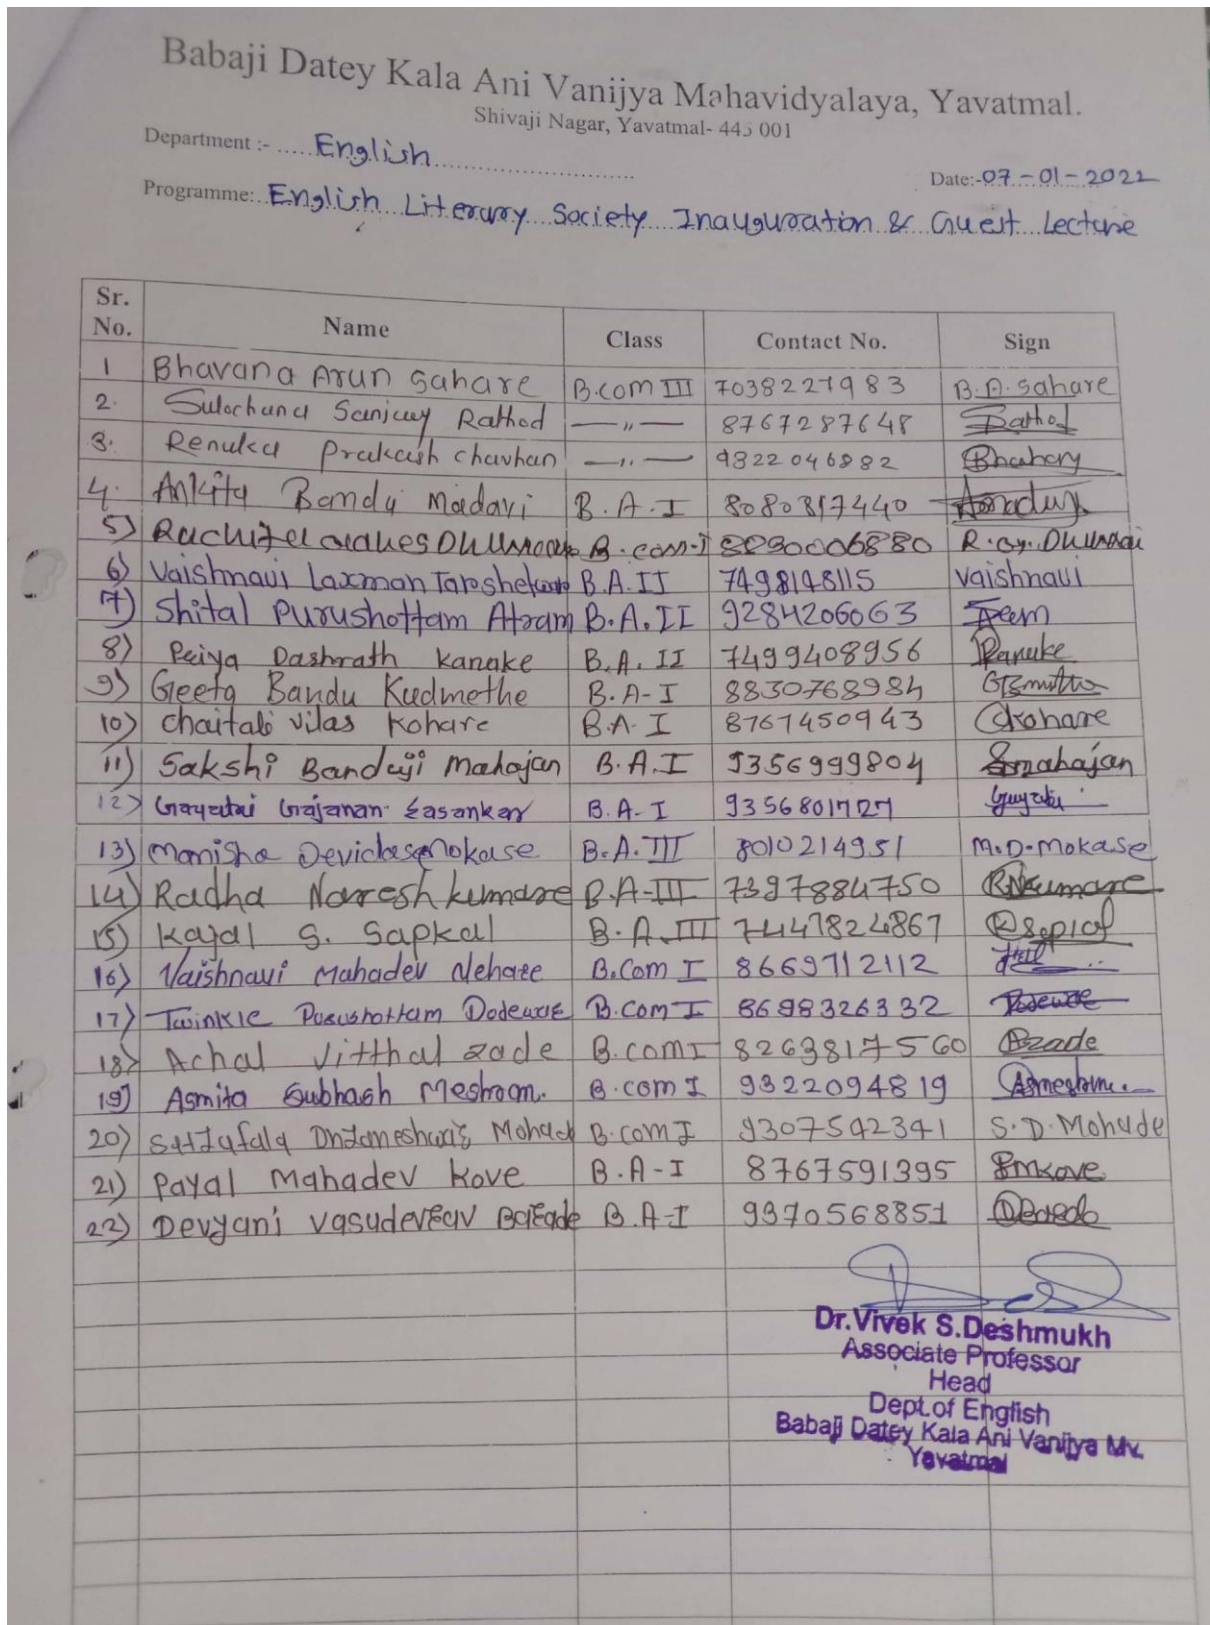 Babaji Datey Kala Ani Vanijya Mahavidyalaya, Yavatmal.
Shivaji Nagar, Yavatmal- 445 001
Department :- English
Date:- 07-01-2022
Programme: English Literary Society Inauguration & Guest Lecture
Sr. No. Name Class Contact No. Sign
1 Bhavana Arun Sahare B.com III 7038227983 B.A. Sahare
2. Sulochana Sanjay Rathod —〃— 8767287648 Rathod
3. Renuka Prakash chavhan —〃— 9322046882
4. Ankita Bandu Madavi B.A.I 8080817440
5) B.com-I 8090006880
6) Vaishnavi Laxman B.A.II 7498148115 Vaishnavi
7) Shital Purushottam Atram B.A.II 9284206063
8) Priya Dashrath Kanake B.A. II 7499408956
9) Geeta Bandu Kudmethe B.A-I 8830768984
10) chaitali vilas Kohare B.A-I 8767450943 Ckohare
11) Sakshi Banduji Mahajan B.A.I 9356999804 Smahajan
12) Gayatri Gajanan Zasankar B.A-I 9356801727
13) Manisha Devidas Mokase B.A.III 8010214951 M.D.Mokase
14) Radha Naresh kumare B.A-III 7397884750 RNkumare
15) Kajal S. Sapkal B.A.III 7447824867
16) Vaishnavi Mahadev Nehare B.Com I 8669712112
17) Twinkle Purushottam Dodeware B.com I 8698326332
18) Achal Vitthal zade B.com I 8263817560 Azade
19) Asmita Subhash Meshram. B.com I 9322094819
20) Dnyaneshwar Mohade B.com I 9307542341 S.D.Mohade
21) Payal Mahadev Kove B.A-I 8767591395 PMKove
22) Devyani Vasudevrav Barade B.A-I 9370568851
Dr.Vivek S.Deshmukh
Associate Professor
Head
Dept.of English
Babaji Datey Kala Ani Vanijya Mv.
Yavatmal